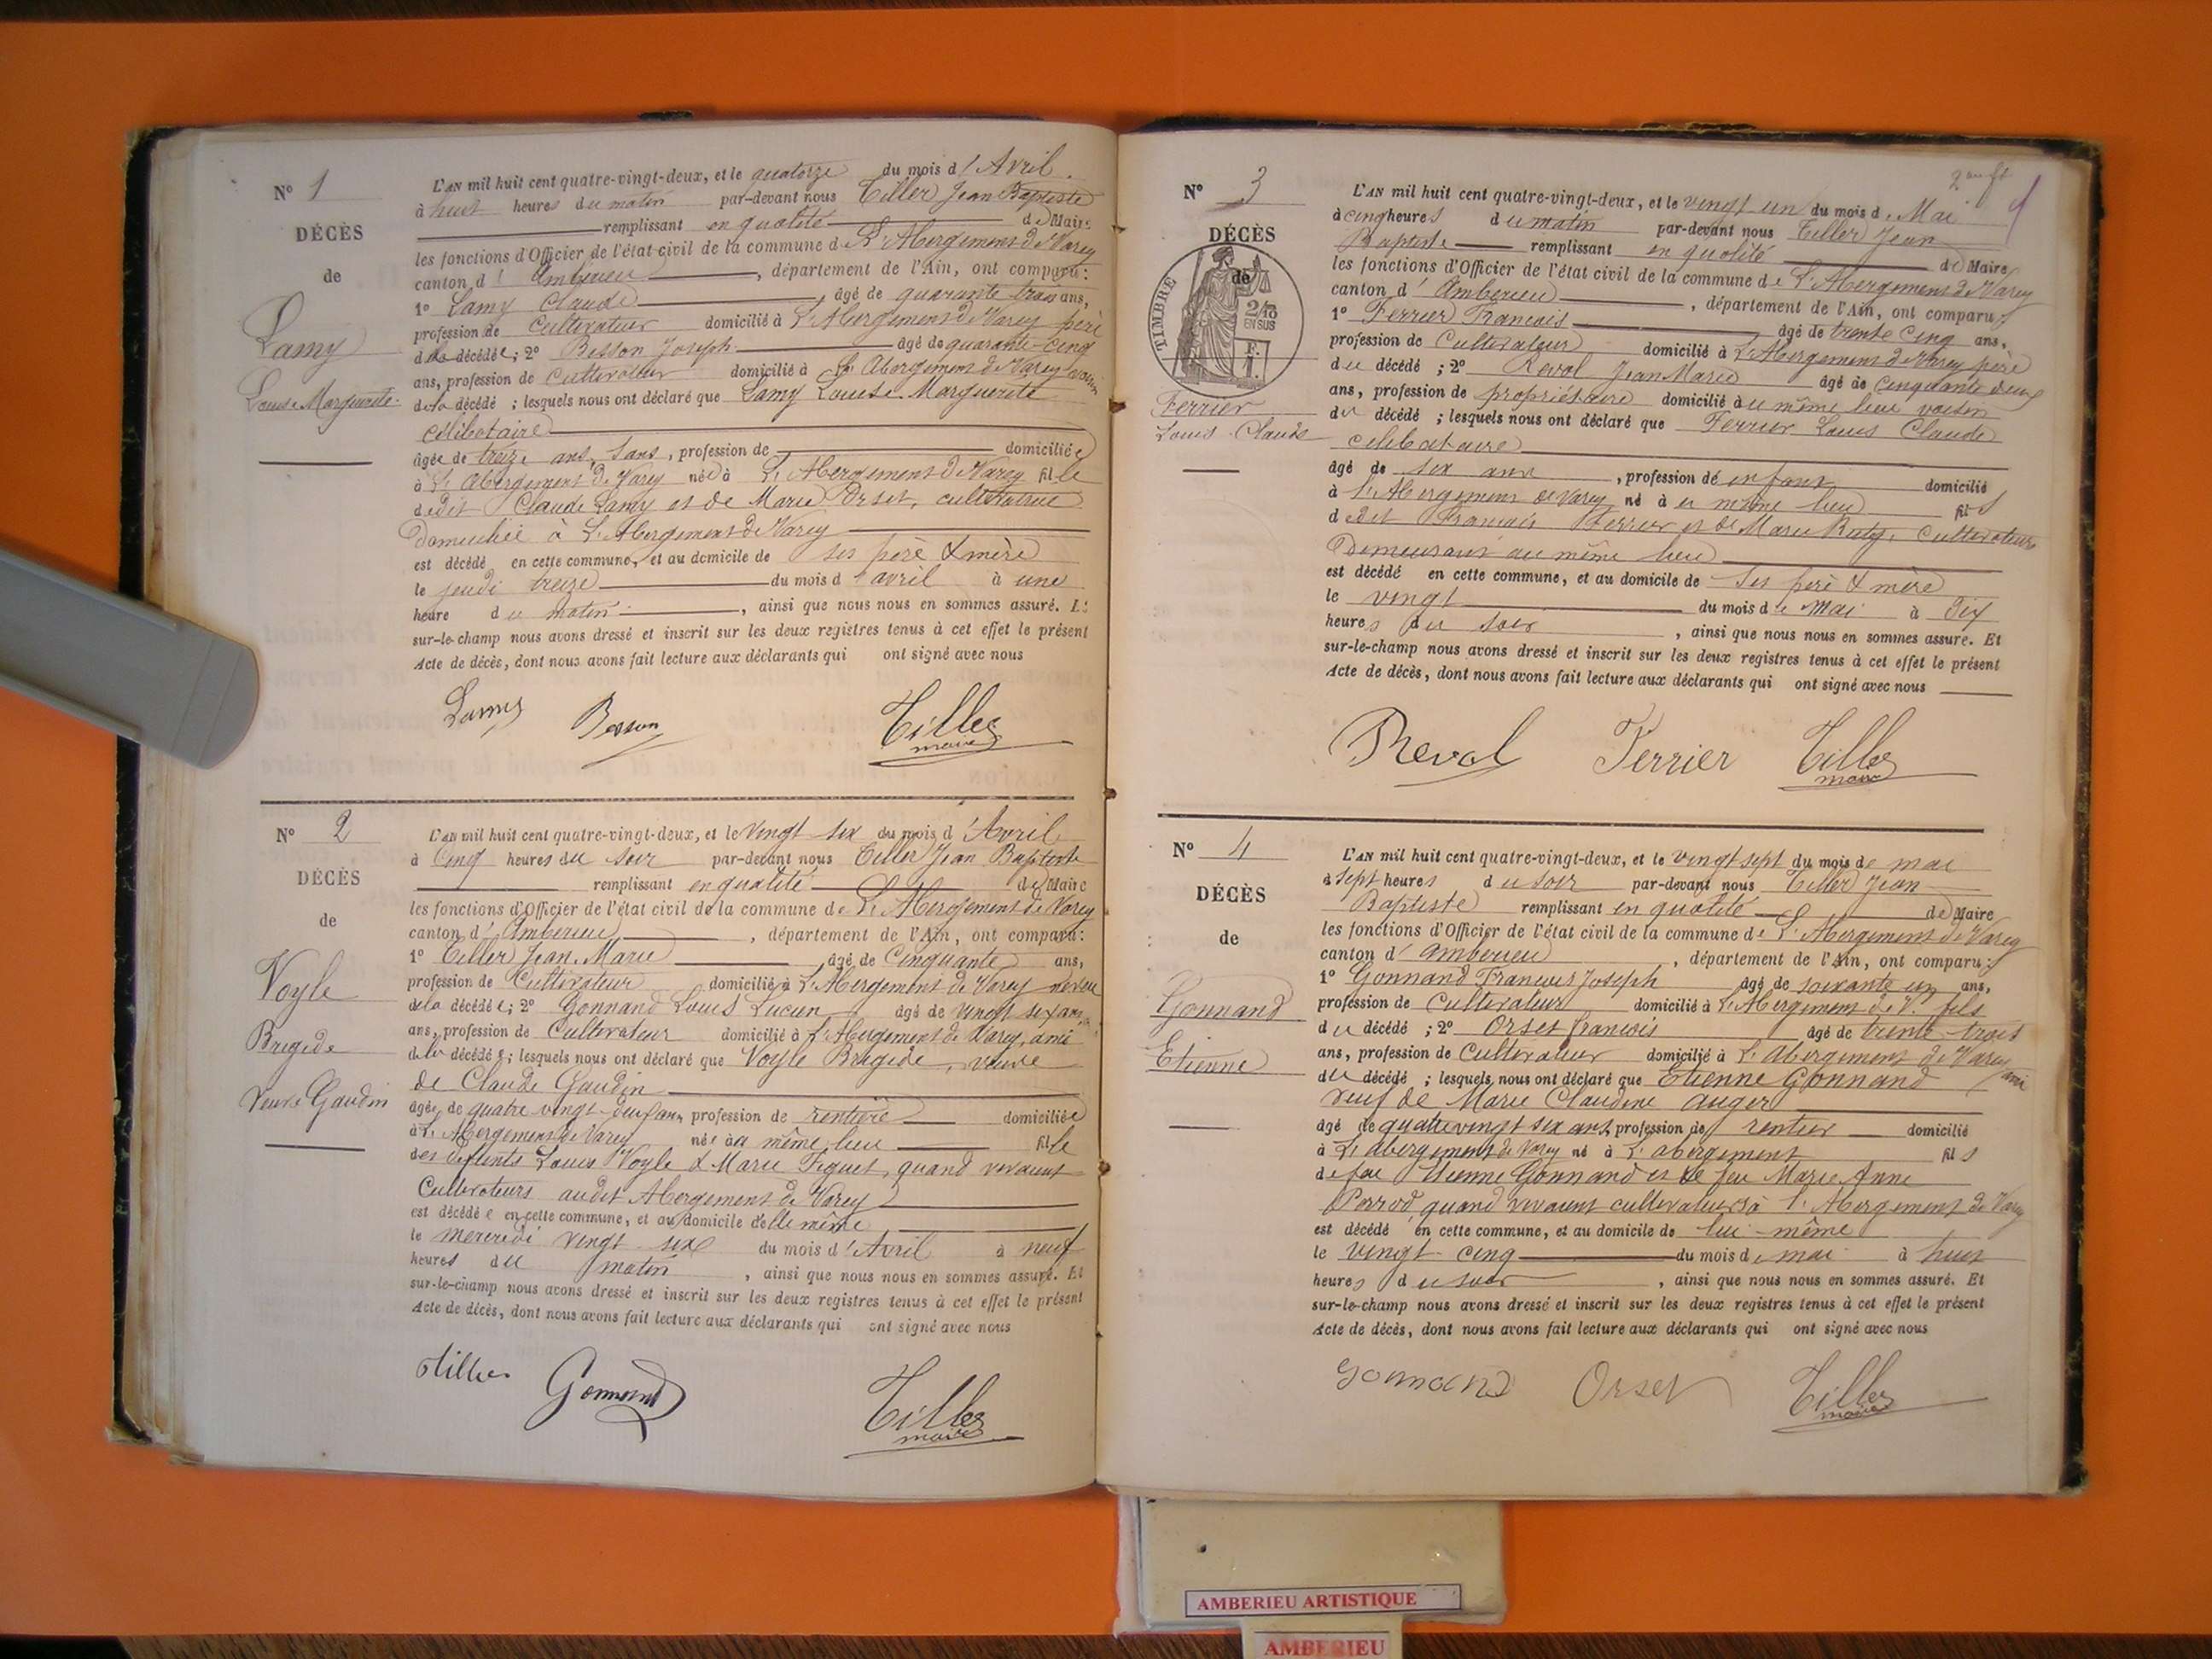 N° 1
DÉCÈS
de
Lamy
Louise Marguerite
L'AN mil huit cent quatre-vingt-deux, et le quatorze du mois d'Avril
à huit heures du matin par-devant nous Tiller Jean Baptiste
remplissant en qualité de Maire
les fonctions d'Officier de l'état civil de la commune de L'Abergement de Varey
canton d'Amberieu, département de l'Ain, ont comparu:
1° Lamy Claude, âgé de quarante trois ans,
profession de Cultivateur domicilié à L'Abergement de Varey père
de la décédée; 2° Besson Joseph âgé de quarante-cinq
ans, profession de Cultivateur domicilié à L'Abergement de Varey voisin
de la décédé; lesquels nous ont déclaré que Lamy Louise Marguerite
célibataire
âgée de treize ans, sans, profession de domiciliée
à L'Abergement de Varey née à L'Abergement de Varey fille
dedit Claude Lamy et de Marie Orset, cultivatrice
Domiciliée à L'Abergement de Varey
est décédé en cette commune, et au domicile de ses père & mère
le jeudi treize du mois d'avril à une
heure du matin, ainsi que nous nous en sommes assuré. Et
sur-le-champ nous avons dressé et inscrit sur les deux registres tenus à cet effet le présent
Acte de décès, dont nous avons fait lecture aux déclarants qui ont signé avec nous
Lamy Besson Tiller
maire
N° 2
DÉCÈS
de
Voyle
Brigide
Veuve Gaudin
L'AN mil huit cent quatre-vingt-deux, et le vingt six du mois d'Avril
à Cinq heures du soir par-devant nous Tiller Jean Baptiste
remplissant en qualité de Maire
les fonctions d'Officier de l'état civil de la commune de L'Abergement de Varey
canton d'Amberieu, département de l'Ain, ont comparu:
1° Tiller Jean Marie, âgé de Cinquante ans,
profession de Cultivateur domicilié à L'Abergement de Varey neveu
de la décédée; 2° Gonnand Louis Lucien âgé de vingt six ans
ans, profession de Cultivateur domicilié à L'Abergement de Varey, ami
de la décédée; lesquels nous ont déclaré que Voyle Brigide, veuve
de Claude Gaudin
âgée de quatre vingt-deux ans, profession de rentière domiciliée
à L'Abergement de Varey née au même lieu fille
des défunts Louis Voyle & Marie Figuet, quand vivaient
Cultivateurs audit Abergement de Varey
est décédée en cette commune, et au domicile d'elle même
le mercredi vingt-six du mois d'Avril à neuf
heures du matin, ainsi que nous nous en sommes assuré. Et
sur-le-champ nous avons dressé et inscrit sur les deux registres tenus à cet effet le présent
Acte de décès, dont nous avons fait lecture aux déclarants qui ont signé avec nous
Tiller Gonnand Tiller
maire
N° 3
DÉCÈS
de
TIMBRE
2/10
EN SUS
F.
1.
Ferrier
Louis Claude
L'AN mil huit cent quatre-vingt-deux, et le vingt un du mois de Mai
à cinq heures du matin par-devant nous Tiller Jean
Baptiste remplissant en qualité de Maire
les fonctions d'Officier de l'état civil de la commune de L'Abergement de Varey
canton d'Amberieu, département de l'Ain, ont comparu:
1° Ferrier Francois âgé de trente cinq ans,
profession de Cultivateur domicilié à L'Abergement de Varey père
du décédé; 2° Reval Jean Marie âgé de cinquante deux
ans, profession de propriétaire domicilié au même lieu voisin
du décédé; lesquels nous ont déclaré que Ferrier Louis Claude
célibataire
âgé de six ans, profession de enfant domicilié
à L'Abergement de Varey né à u même lieu fils
dedit Francois Ferrier et de Marie Ruty, Cultivateurs
Demeurant au même lieu
est décédé en cette commune, et au domicile de ses père & mère
le vingt du mois de Mai à dix
heures du soir, ainsi que nous nous en sommes assuré. Et
sur-le-champ nous avons dressé et inscrit sur les deux registres tenus à cet effet le présent
Acte de décès, dont nous avons fait lecture aux déclarants qui ont signé avec nous
Reval Ferrier Tiller
maire
N° 4
DÉCÈS
de
Gonnand
Etienne
L'AN mil huit cent quatre-vingt-deux, et le vingt sept du mois de mai
à sept heures du soir par-devant nous Tiller Jean
Baptiste remplissant en qualité de Maire
les fonctions d'Officier de l'état civil de la commune de L'Abergement de Varey
canton d'Amberieu, département de l'Ain, ont comparu:
1° Gonnand Francois Joseph âgé de soixante un ans,
profession de Cultivateur domicilié à L'Abergement de V. fils
du décédé; 2° Orset francois âgé de trente-trois
ans, profession de Cultivateur domicilié à L'Abergement de Varey ami
du décédé; lesquels nous ont déclaré que Etienne Gonnand
veuf de Marie Claudine Auger
âgé de quatre vingt six ans, profession de rentier domicilié
à L'abergement de Varey né à L'abergement fils
de feu Etienne Gonnand et de feu Marie Anne
Perrod quand vivaient cultivateurs à L'Abergement de Varey
est décédé en cette commune, et au domicile de lui-même
le vingt-cinq du mois de mai à huit
heures du soir, ainsi que nous nous en sommes assuré. Et
sur-le-champ nous avons dressé et inscrit sur les deux registres tenus à cet effet le présent
Acte de décès, dont nous avons fait lecture aux déclarants qui ont signé avec nous
Gonnand Orset Tiller
maire
AMBERIEU ARTISTIQUE
AMBERIEU